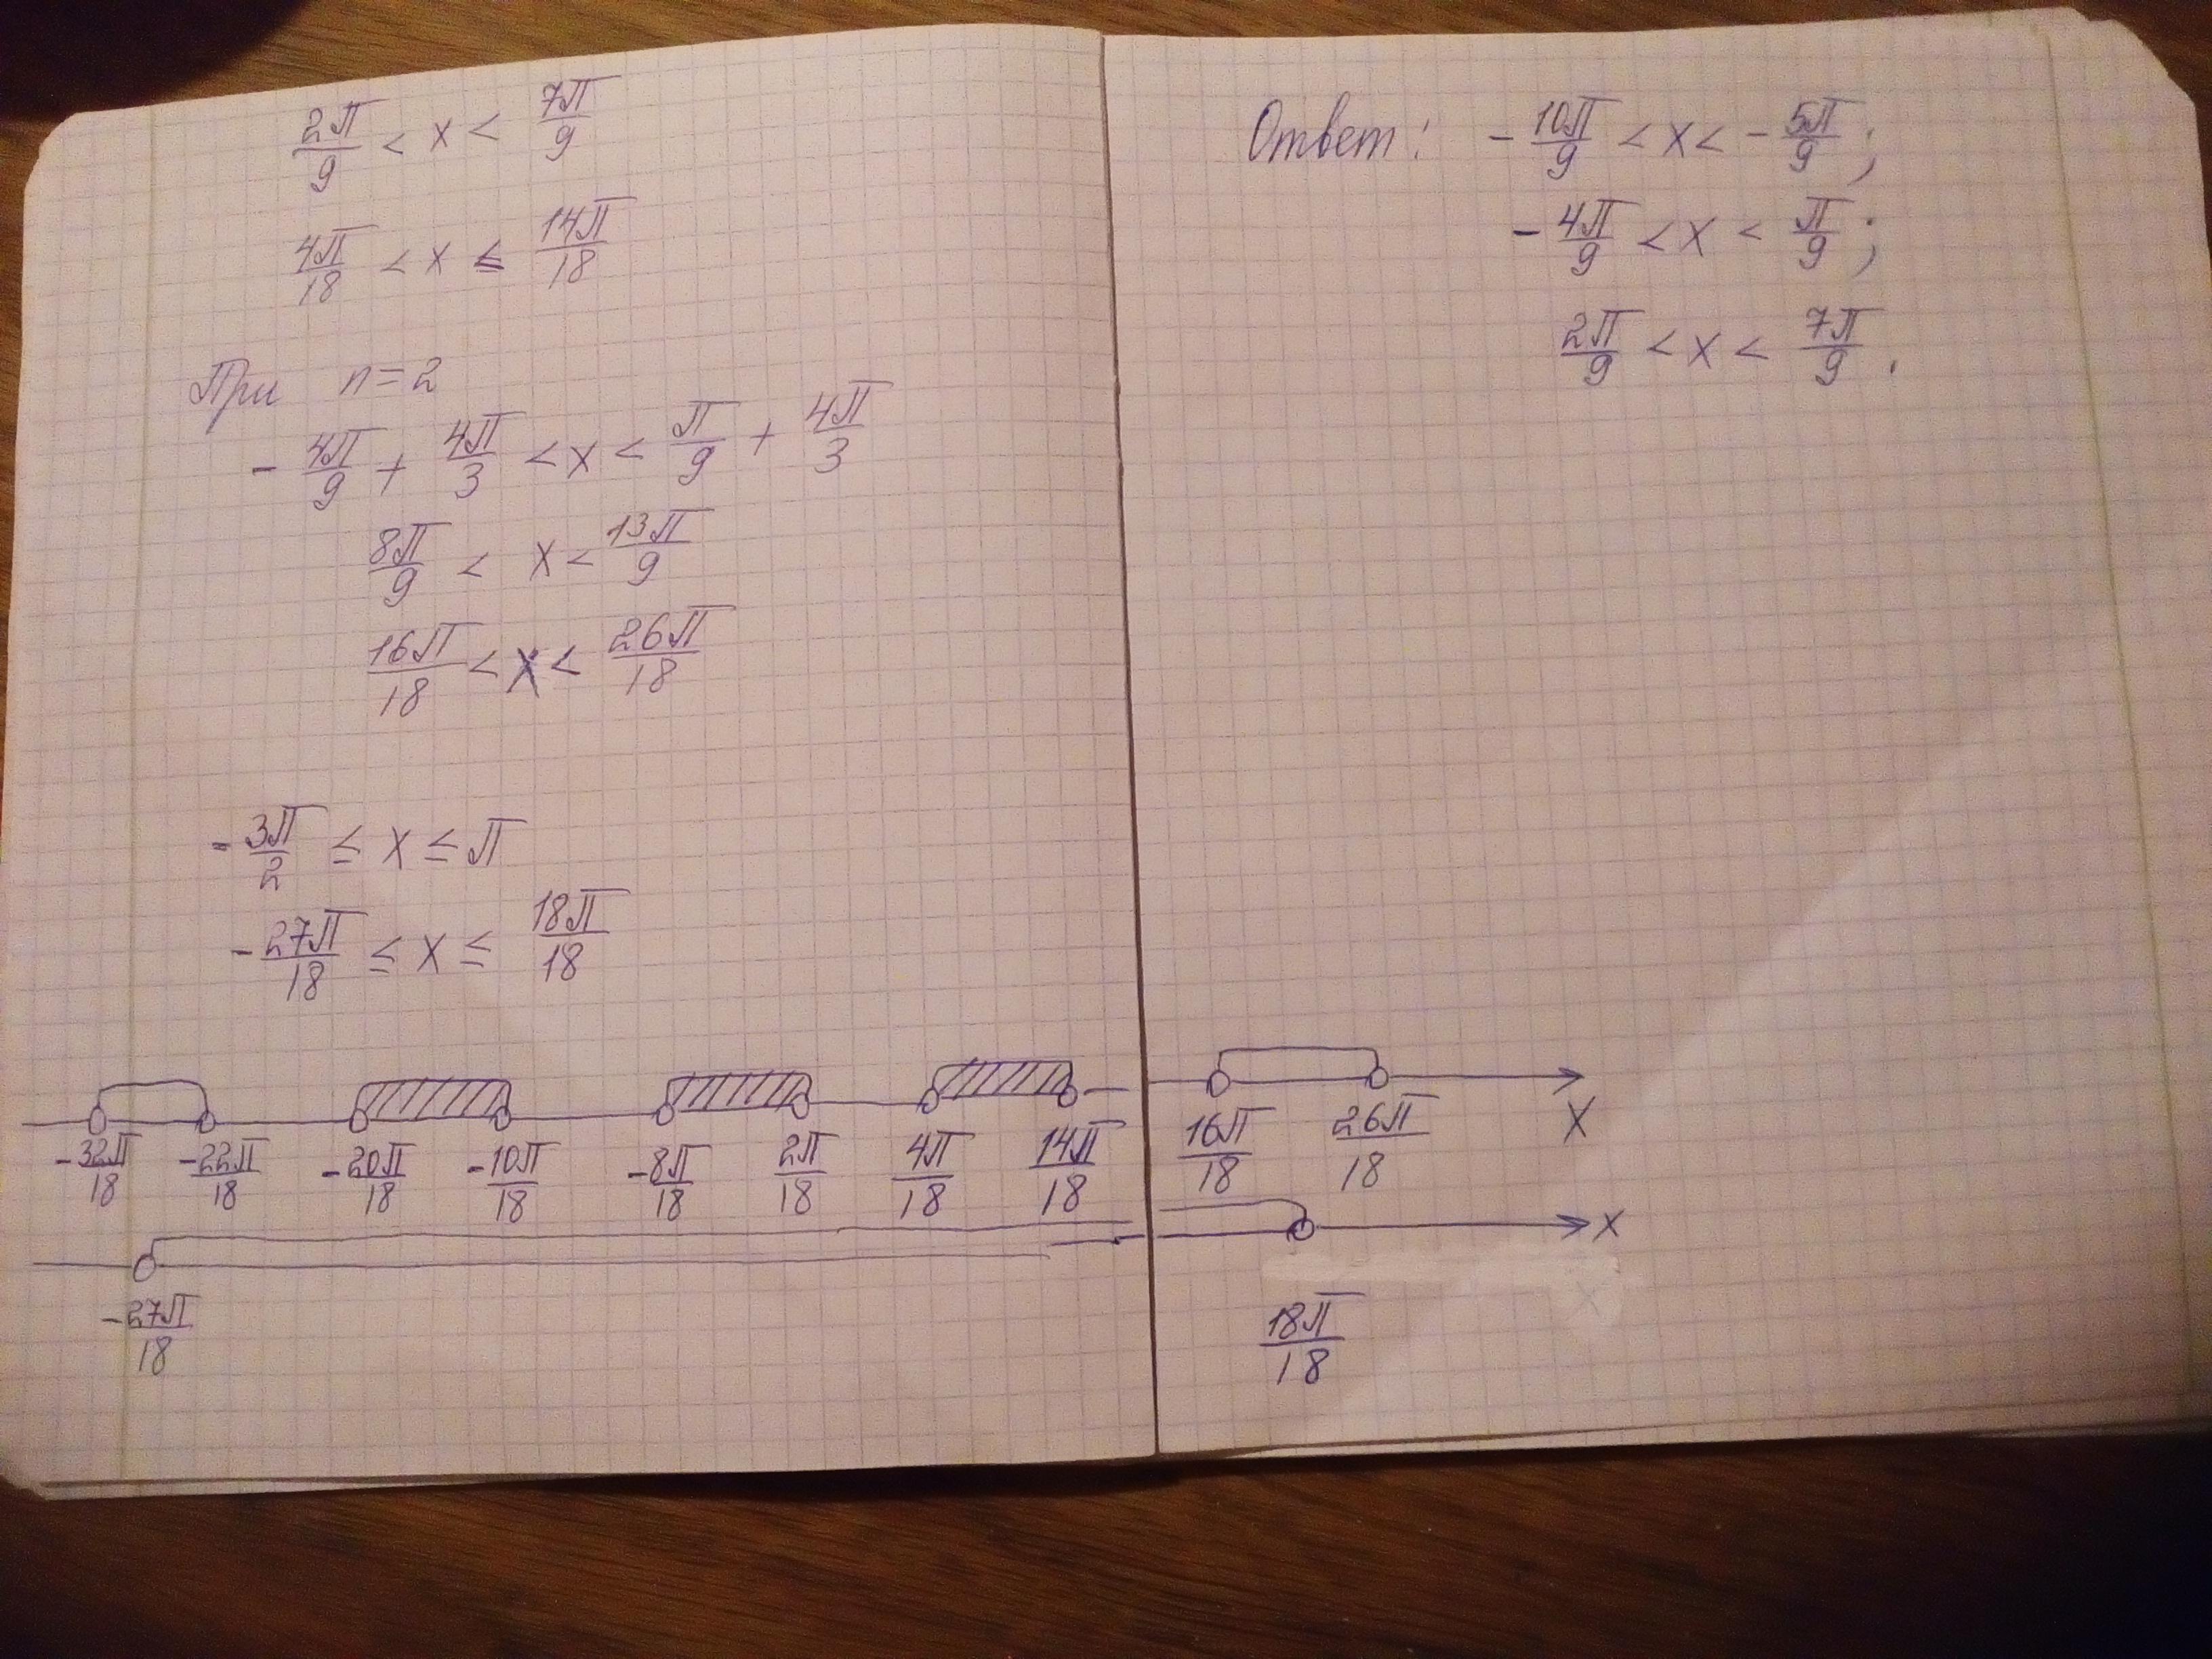 2π/9 < x < 7π/9
4π/18 < x ≤ 14π/18
При n=2
- 4π/9 + 4π/3 < x < π/9 + 4π/3
8π/9 < x < 13π/9
16π/18 < x < 26π/18
- 3π/2 ≤ x ≤ π
- 27π/18 ≤ x ≤ 18π/18
-32π/18 -22π/18 -20π/18 -10π/18 -8π/18 2π/18 4π/18 14π/18 16π/18 26π/18 x
x
-27π/18 18π/18
Ответ: - 10π/9 < x < - 5π/9;
- 4π/9 < x < π/9;
2π/9 < x < 7π/9.